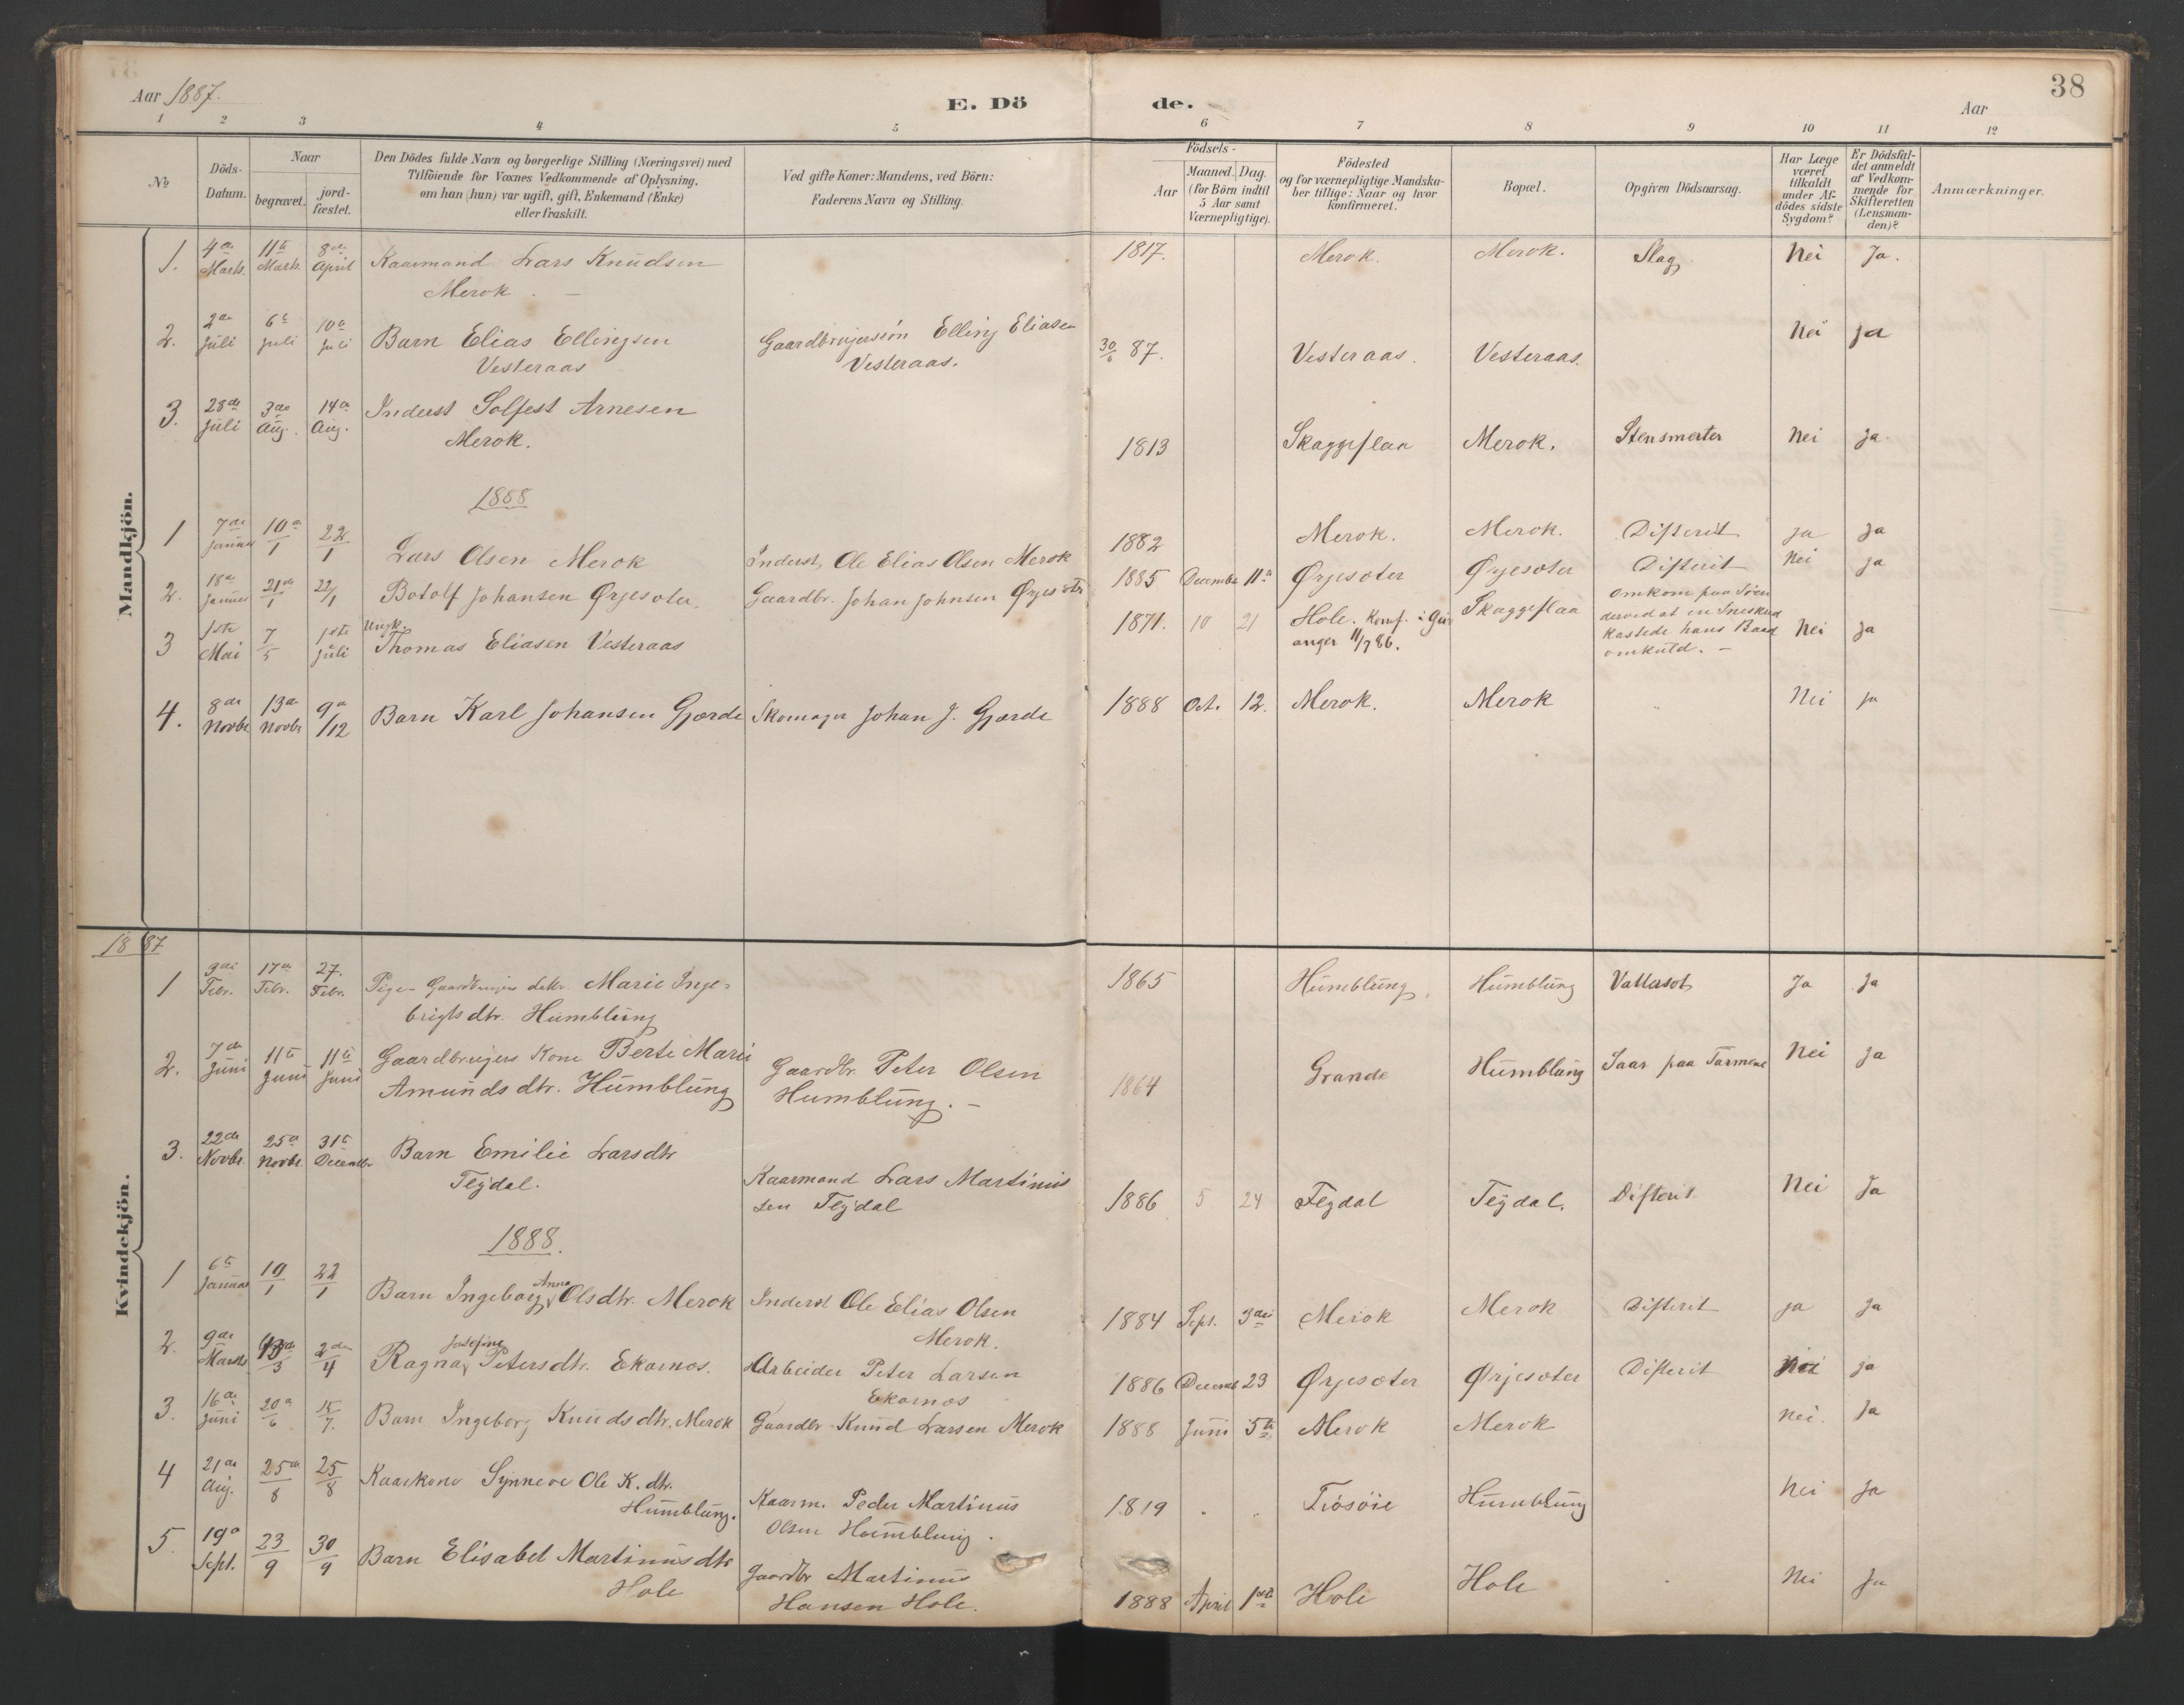 38
Aar 1887.
E. Dö de.
Aar
1 2 3 4 5 6 7 8 9 10 11 12
No
Döds-Datum.
Naar begravet. jordfæstet.
Den Dödes fulde Navn og borgerlige Stilling (Næringsvei) med
Tilföiende for Voxnes Vedkommende af Oplysning,
om han (hun) var ugift, gift, Enkemand (Enke)
eller fraskilt.
Ved gifte Koner: Mandens, ved Börn:
Faderens Navn og Stilling.
Födsels-
Aar Maaned. Dag.
(for Börn indtil
5 Aar samt
Værnepligtige).
Födested
og for værnepligtige Mandskaber tillige: Naar og hvor
konfirmeret.
Bopæl.
Opgiven Dödsaarsag.
Har Læge
været
tilkaldt
under Afdödes sidste
Sygdom?
Er Dödsfaldet anmeldt
af Vedkommende for
Skifteretten
(Lensmanden)?
Anmærkninger.
Mandkjön.
1. 4de Marts. 11te Marts. 8de April Kaarmand Lars Knudsen 1817. Merok. Merok. Slag Nei Ja.
Merok.
2. 2den Juli 6te Juli 10de Juli Barn Elias Ellingsen Gaardbrugersön Elling Eliasen 30/6 87. Vesteraas. Vesteraas. Nei ja
Vesteraas Vesteraas.
3. 28de Juli 3die Aug. 14de Aug. Inderst Solfest Arnesen 1813 Skaggeflaa Merok. Stensmerter Nei ja
Merok.
1888
1 7de Januar 10de/1 22/1 Lars Olsen Merok Inderst, Ole Elias Olsen Merok 1882 Merok. Merok. Difterit ja ja
2. 18de Januar 21de/1 22/1 Botolf Johansen Ørjesæter. Gaardbr. Johan Johnsen Ørjesæter 1885 December 11te Ørjesæter Ørjesæter Difterit Nei ja
3 1ste Mai 7/5 1ste Juli Ungk. Thomas Eliasen Vesteraas 1871. 10 21 Hole. Konf. i Geiranger 11/7 86. Skaggeflaa Omkom paa Søen
derved at en Sneskred
kastede hans Baad
omkuld. Nei ja
4. 8de Novbr 13de Novbr 9de/12 Barn Karl Johansen Gjærde Skomager Johan J. Gjærde 1888 Oct. 12. Merok. Merok Nei ja
Kvindekjön.
1887
1 3die Febr. 17de Febr. 27. Febr. Pige Gaardbrugers datr. Marie Inge- 1865 Humblung. Humblung Vattersot Ja Ja
brigts dtr. Humblung
2. 7de Juni 11te Juni 11te Juni Gaardbrugers Kone Berte Marie Gaardbr. Peter Olsen 1864 Grande Humblung Saar paa Tarmene Nei ja
Amunds dtr. Humblung Humblung.
3. 22de Novbr. 25de Novbr. 31te Decembr Barn Emilie Larsdtr Kaarmand Lars Martinus 1886 5 24 Fleydal Fleydal. Difterit Nei Ja
Fleydal. sen Fleydal
1888.
1 6te Januar 10/1 22/1 Barn Ingeborg Anna Olsdtr. Merok Inderst Ole Elias Olsen 1884 Sept. 3die Merok Merok Difterit ja ja
Merok.
2. 9de Marts 13de/3 2den/4 Ragna Josefine Petersdtr. Ekornes. Arbeider Peter Larsen 1886 Decemb 23 Ørjesæter Ørjesæter Difterit Nei ja
Ekornes
3. 16de Juni 20de/6 15/7. Barn Ingeborg Knudsdtr. Merok Gaardbr Knud Larsen Merok 1888 Juni 5te Merok Merok nei. Ja
4 21de Aug. 25de/8 25/8 Kaarkone Synneve Ole K. dtr. Kaarm. Peder Martinus 1819 Humblung Nei Ja
Humblung. Olsen Humblung.
5. 19de Sept. 23/9 30/9 Barn Elisabet Martinus dtr Gaardbr Martinus 1888 April 1ste Hole Hole Nei Ja
Hole Hansen Hole.